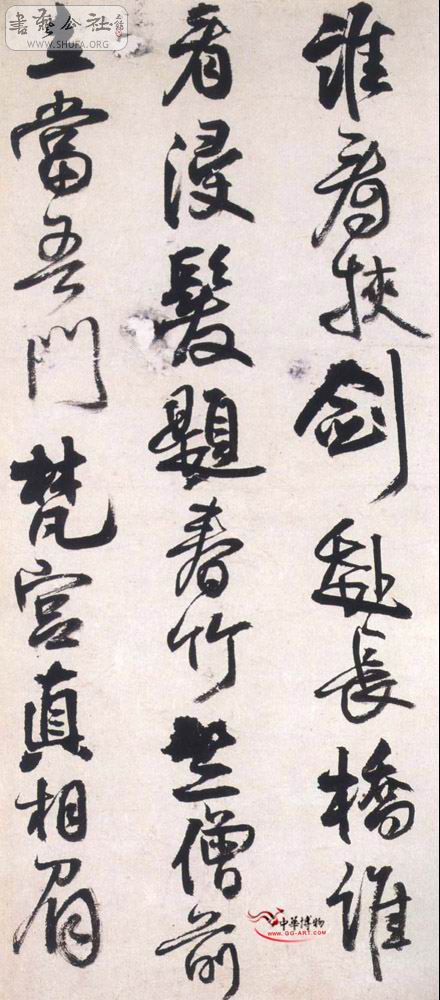 誰看挾劍赴長橋誰
看浸髮題春竹僧前
立當吾門梵宮真相眉
書藝公社
WWW.SHUFA.ORG
中華博物
WWW.GG-ART.COM